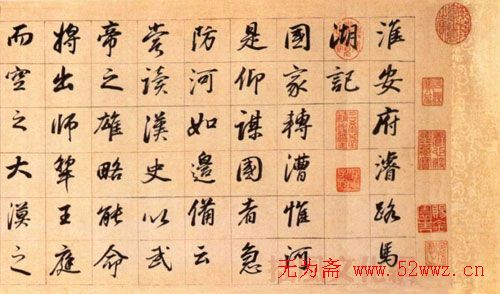 淮安府濬路馬
湖記
國家轉漕惟河
是仰謀國者急
防河如邊備云
嘗讀漢史以武
帝之雄略能命
將出師犂王庭
而空之大漠之
无为斋 www.52wwz.cn